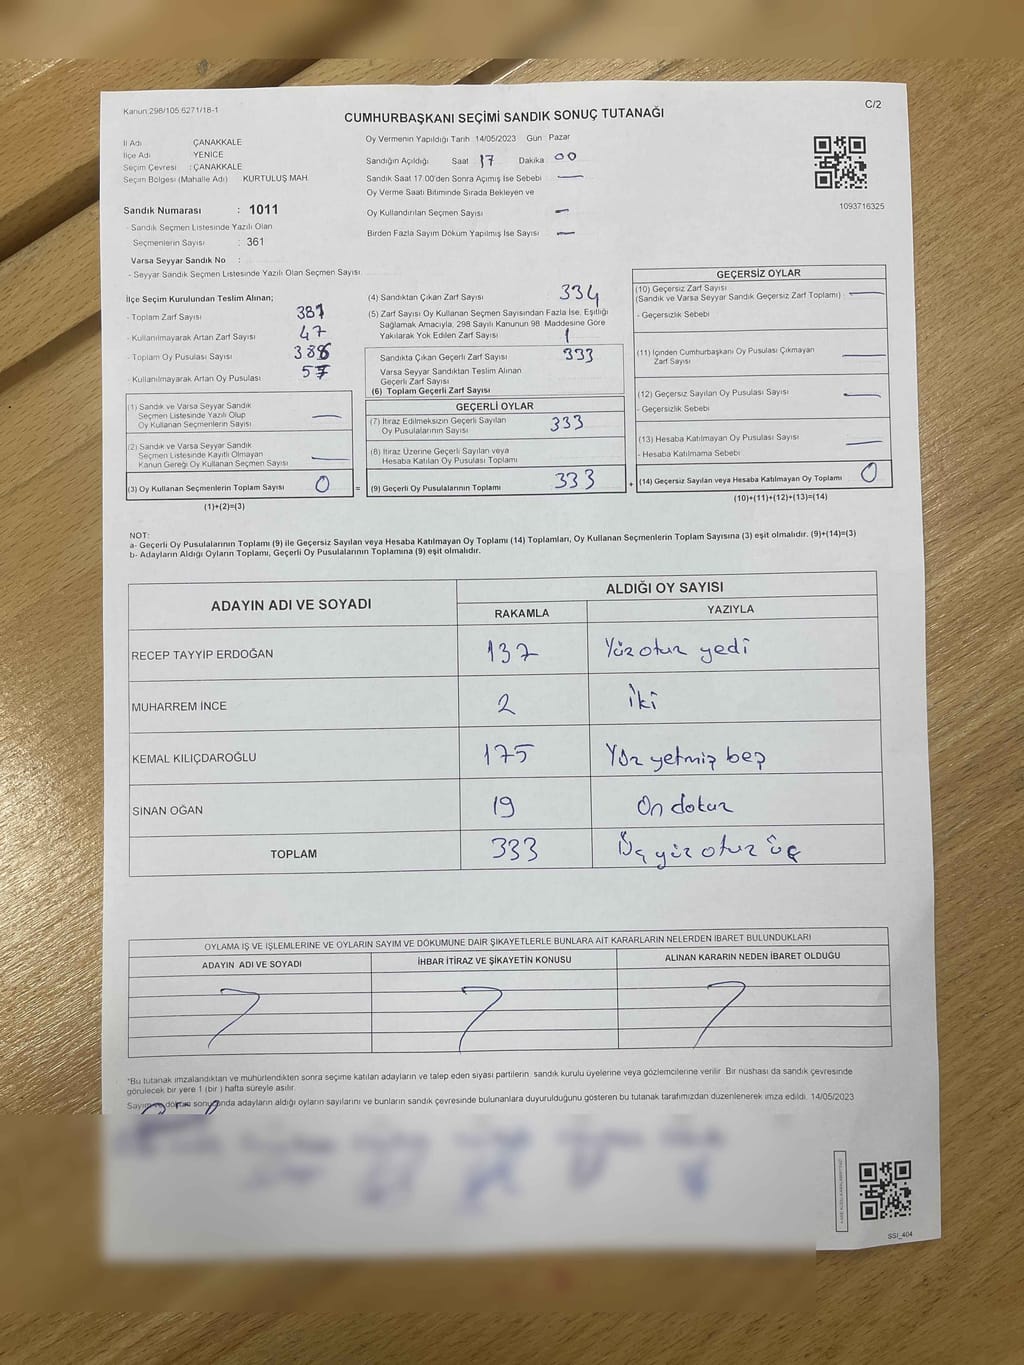 Kanun 298/105 6271/18-1
C/2
CUMHURBAŞKANI SEÇİMİ SANDIK SONUÇ TUTANAĞI
İl Adı ÇANAKKALE
İlçe Adı YENİCE
Seçim Çevresi : ÇANAKKALE
Seçim Bölgesi (Mahalle Adı) KURTULUŞ MAH.
Sandık Numarası : 1011
- Sandık Seçmen Listesinde Yazılı Olan
Seçmenlerin Sayısı : 361
Varsa Seyyar Sandık No :
- Seyyar Sandık Seçmen Listesinde Yazılı Olan Seçmen Sayısı
Oy Vermenin Yapıldığı Tarih 14/05/2023 Gün Pazar
Sandığın Açıldığı Saat 17 Dakika 00
Sandık Saat 17.00'den Sonra Açımış İse Sebebi —
Oy Verme Saati Bitiminde Sırada Bekleyen ve
Oy Kullandırılan Seçmen Sayısı —
Birden Fazla Sayım Döküm Yapılmış İse Sayısı —
1093716325
İlçe Seçim Kurulundan Teslim Alınan;
- Toplam Zarf Sayısı 381
- Kullanılmayarak Artan Zarf Sayısı 47
- Toplam Oy Pusulası Sayısı
- Kullanılmayarak Artan Oy Pusulası
(1) Sandık ve Varsa Seyyar Sandık
Seçmen Listesinde Yazılı Olup
Oy Kullanan Seçmenlerin Sayısı —
(2) Sandık ve Varsa Seyyar Sandık
Seçmen Listesinde Kayıtlı Olmayan
Kanun Gereği Oy Kullanan Seçmen Sayısı —
(3) Oy Kullanan Seçmenlerin Toplam Sayısı 0 =
(1)+(2)=(3)
(4) Sandıktan Çıkan Zarf Sayısı 334
(5) Zarf Sayısı Oy Kullanan Seçmen Sayısından Fazla İse, Eşitliği
Sağlamak Amacıyla, 298 Sayılı Kanunun 98. Maddesine Göre
Yakılarak Yok Edilen Zarf Sayısı 1
Sandıkta Çıkan Geçerli Zarf Sayısı 333
Varsa Seyyar Sandıktan Teslim Alınan
Geçerli Zarf Sayısı
(6) Toplam Geçerli Zarf Sayısı
GEÇERLİ OYLAR
(7) İtiraz Edilmeksizin Geçerli Sayılan
Oy Pusulalarının Sayısı 333
(8) İtiraz Üzerine Geçerli Sayılan veya
Hesaba Katılan Oy Pusulası Toplamı
(9) Geçerli Oy Pusulalarının Toplamı 333 +
GEÇERSİZ OYLAR
(10) Geçersiz Zarf Sayısı
(Sandık ve Varsa Seyyar Sandık Geçersiz Zarf Toplamı) —
- Geçersizlik Sebebi
(11) İçinden Cumhurbaşkanı Oy Pusulası Çıkmayan
Zarf Sayısı —
(12) Geçersiz Sayılan Oy Pusulası Sayısı —
- Geçersizlik Sebebi
(13) Hesaba Katılmayan Oy Pusulası Sayısı —
- Hesaba Katılmama Sebebi
(14) Geçersiz Sayılan veya Hesaba Katılmayan Oy Toplamı 0
(10)+(11)+(12)+(13)=(14)
NOT:
a- Geçerli Oy Pusulalarının Toplamı (9) ile Geçersiz Sayılan veya Hesaba Katılmayan Oy Toplamı (14) Toplamları, Oy Kullanan Seçmenlerin Toplam Sayısına (3) eşit olmalıdır. (9)+(14)=(3)
b- Adayların Aldığı Oyların Toplamı, Geçerli Oy Pusulalarının Toplamına (9) eşit olmalıdır.
ADAYIN ADI VE SOYADI ALDIĞI OY SAYISI
RAKAMLA YAZIYLA
RECEP TAYYİP ERDOĞAN 137 Yüz otuz yedi
MUHARREM İNCE 2 İki
KEMAL KILIÇDAROĞLU 175 Yüz yetmiş beş
SİNAN OĞAN 19 On dokuz
TOPLAM 333 Üç yüz otuz üç
OYLAMA İŞ VE İŞLEMLERİNE VE OYLARIN SAYIM VE DÖKÜMÜNE DAİR ŞİKAYETLERLE BUNLARA AİT KARARLARIN NELERDEN İBARET BULUNDUKLARI
ADAYIN ADI VE SOYADI İHBAR İTİRAZ VE ŞİKAYETİN KONUSU ALINAN KARARIN NEDEN İBARET OLDUĞU
*Bu tutanak imzalandıktan ve mühürlendikten sonra seçime katılan adayların ve talep eden siyasi partilerin, sandık kurulu üyelerine veya gözlemcilerine verilir. Bir nüshası da sandık çevresinde
görülecek bir yere 1 (bir ) hafta süreyle asılır.
Sayım döküm sonucunda adayların aldığı oyların sayılarını ve bunların sandık çevresinde bulunanlara duyurulduğunu gösteren bu tutanak tarafımızdan düzenlenerek imza edildi. 14/05/2023
SSI_404